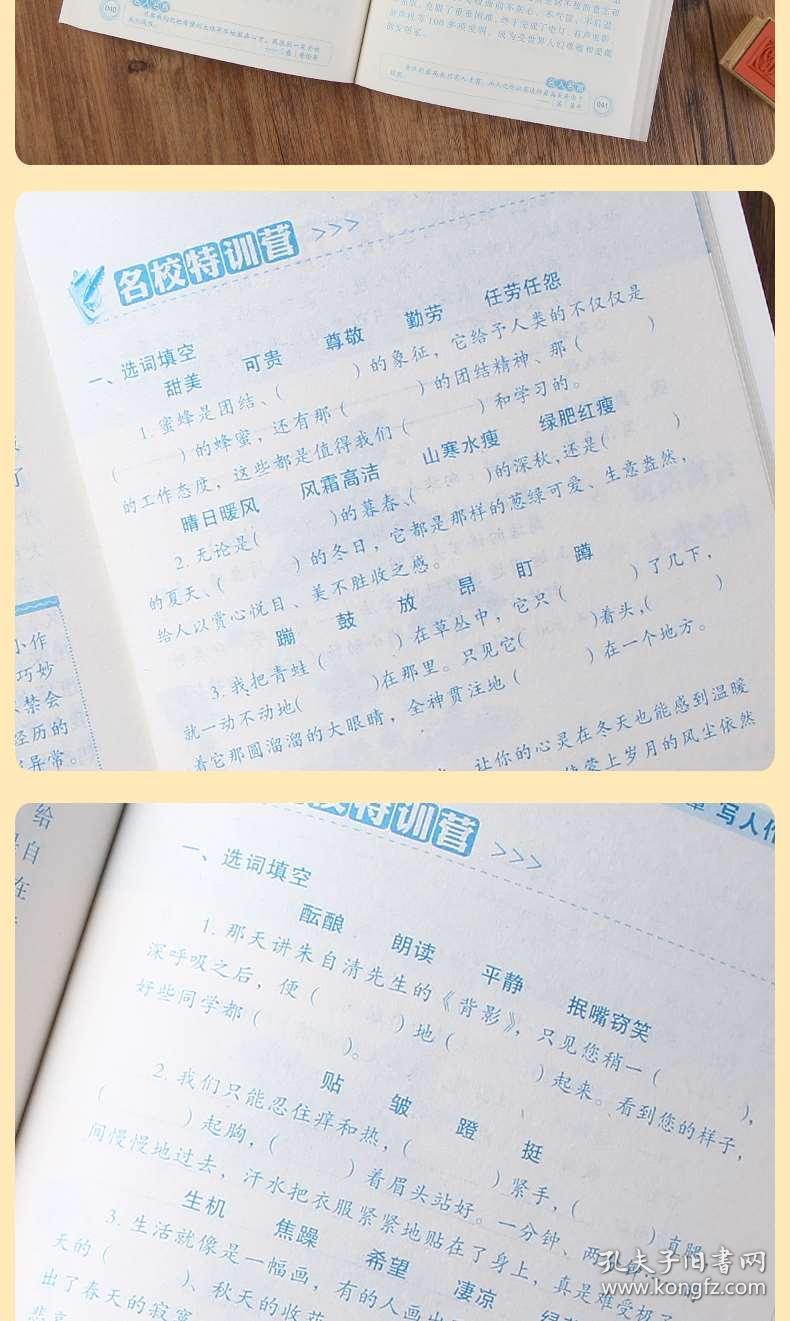 040
名人名言
041
名人名言
名校特训营 >>>
一、选词填空
甜美 可贵 尊敬 勤劳 任劳任怨
1. 蜜蜂是团结、( )的象征，它给予人类的不仅仅是
( )的蜂蜜，还有那( )的团结精神、那( )
的工作态度，这些都是值得我们( )和学习的。
晴日暖风 风霜高洁 山寒水瘦 绿肥红瘦
2. 无论是( )的暮春、( )的深秋，还是( )
的夏天、( )的冬日，它都是那样的葱绿可爱、生意盎然，
给人以赏心悦目、美不胜收之感。
蹦 鼓 放 昂 盯 蹲
3. 我把青蛙( )在草丛中，它只( )了几下，
就一动不动地( )在那里。只见它( )着头，( )
着它那圆溜溜的大眼睛，全神贯注地( )在一个地方。
让你的心灵在冬天也能感到温暖
蒙上岁月的风尘依然
小作
巧妙
禁会
经历的
异常。
校特训营 >>>
章 写人作
一、选词填空
酝酿 朗读 平静 抿嘴窃笑
1. 那天讲朱自清先生的《背影》，只见您稍一( )，
深呼吸之后，便( )地( )起来。看到您的样子，
好些同学都( )。
贴 皱 蹬 挺
2. 我们只能忍住痒和热，( )紧手，( )直腿，
( )起胸，( )着眉头站好。一分钟、两分
间慢慢地过去，汗水把衣服紧紧地贴在了身上，真是难受极了
生机 焦躁 希望 凄凉
3. 生活就像是一幅画，有的人画出
天的( )、秋天的收
出了春天的寂寞
给
自
在
孔夫子旧书网
www.kongfz.com